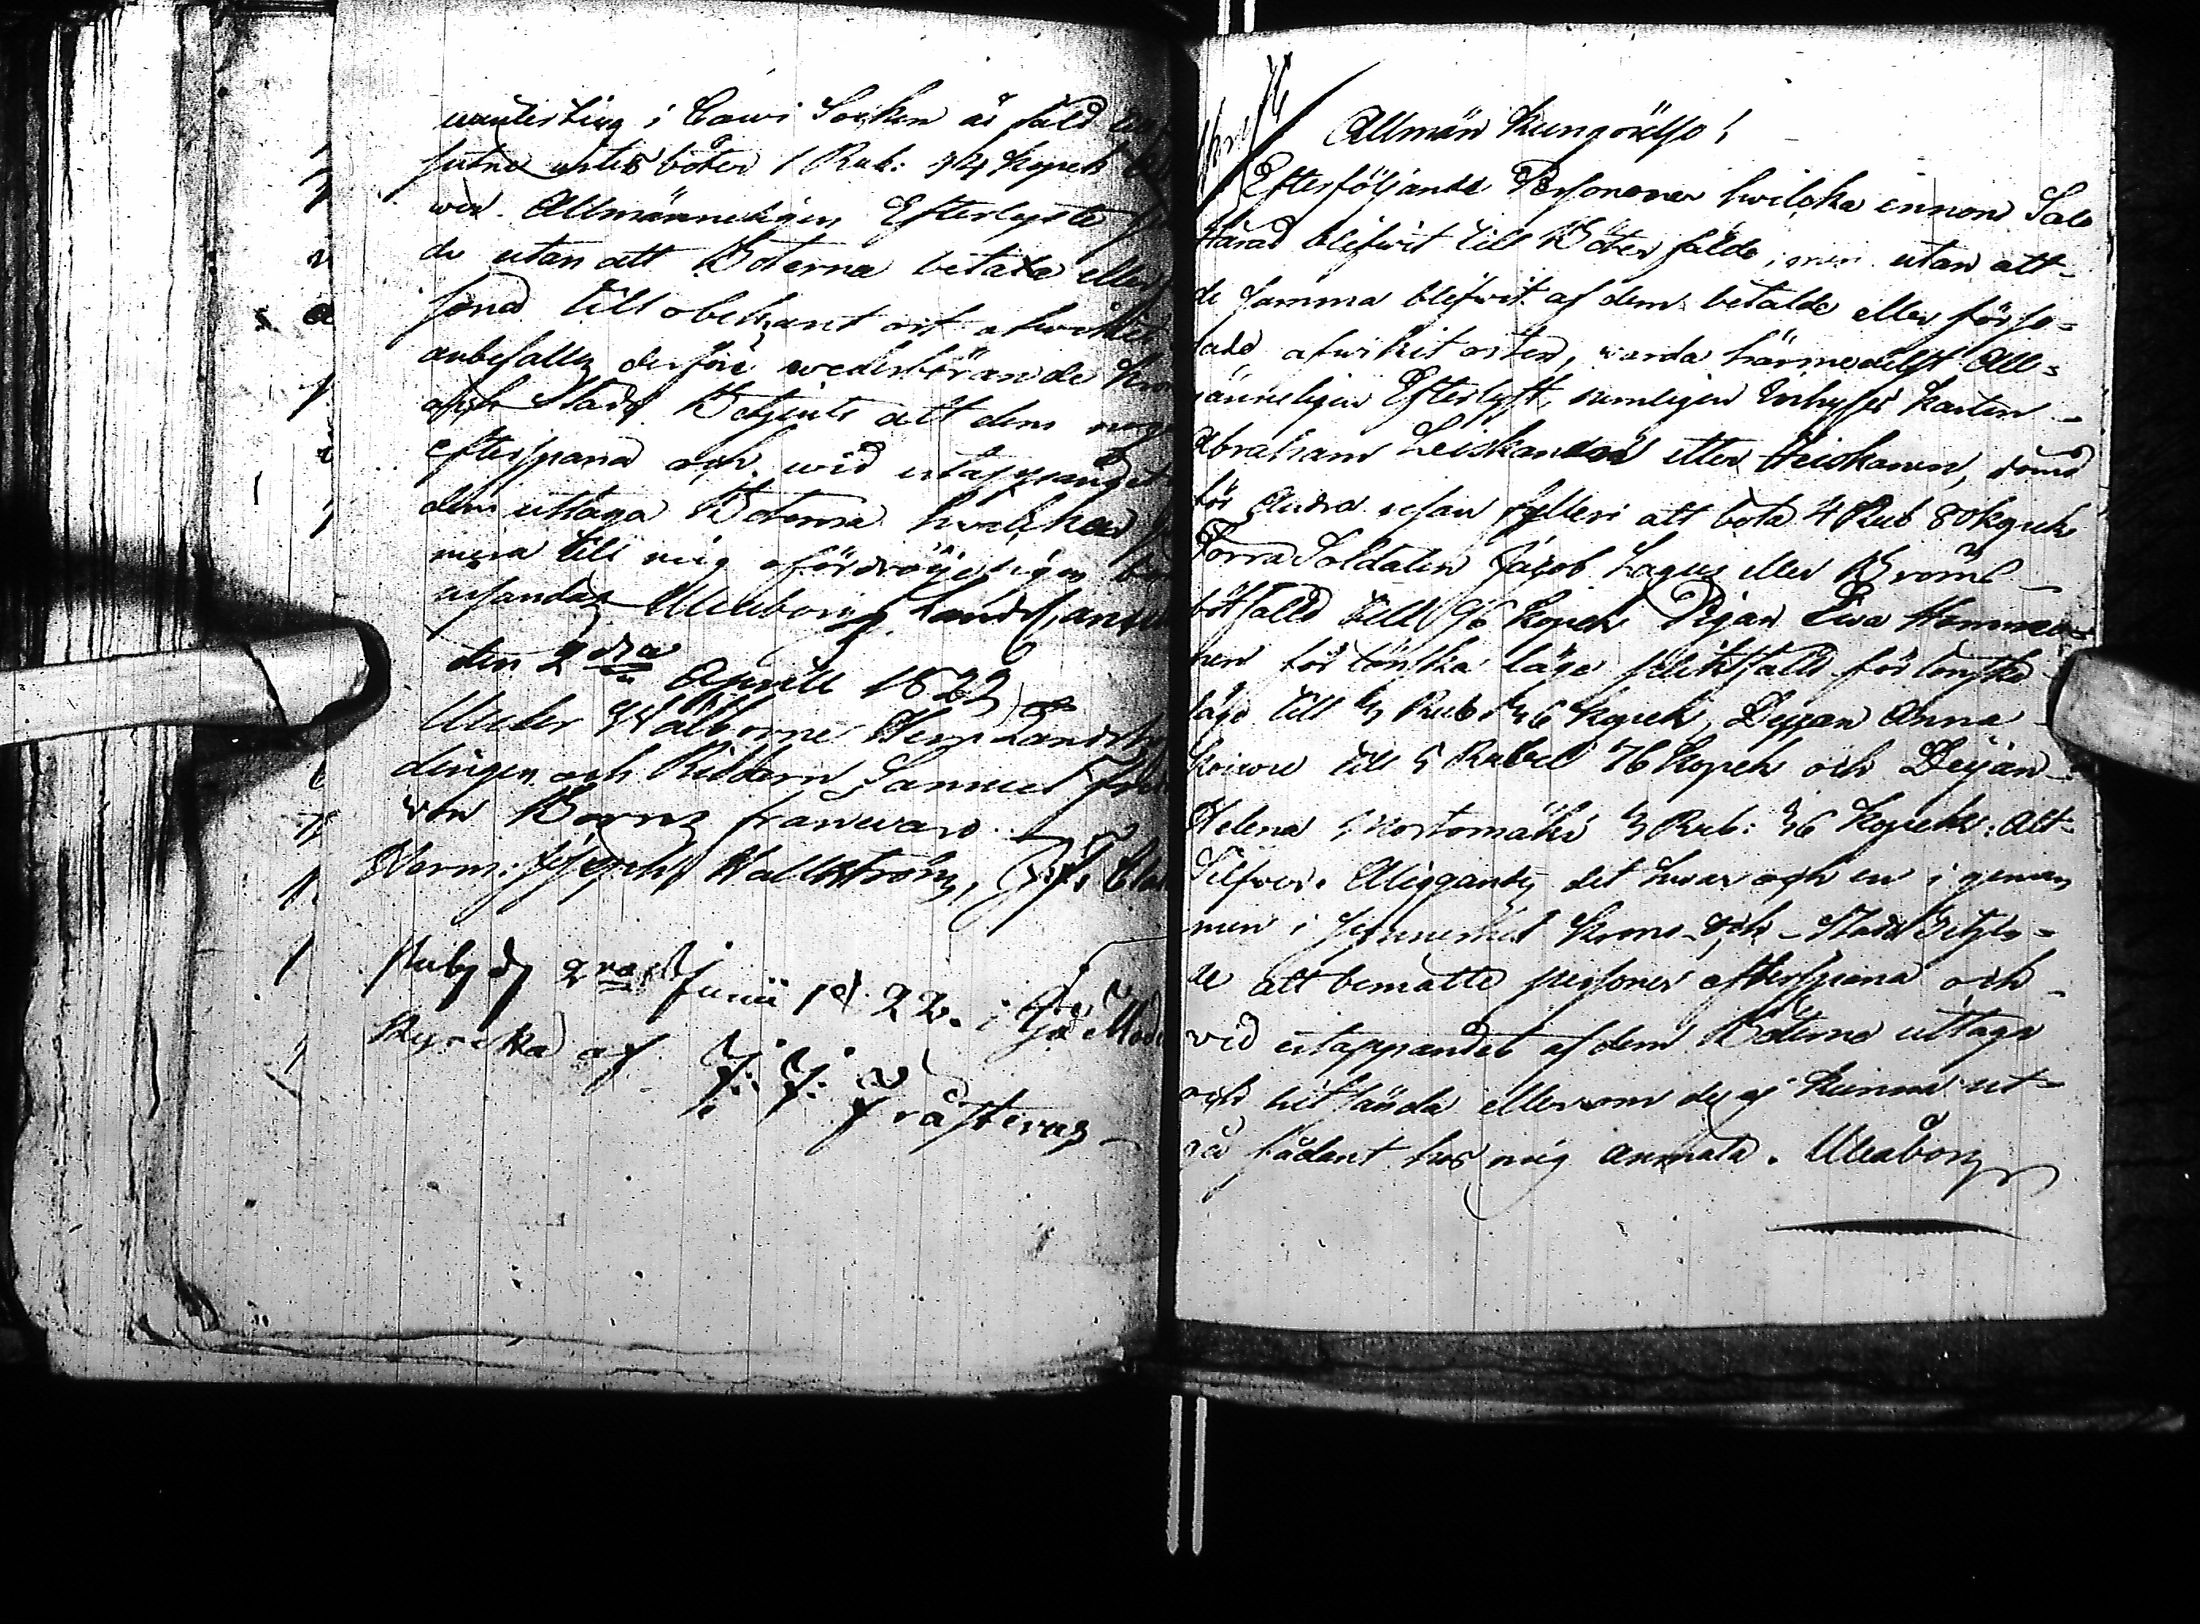 i Cawi Socken är fäld
böter 1 Rub: 44 Kopek
Allmänneligen Efterlyste
de utan att Böterna betala eller
sona till obekant ort afwikit
anbefalles derföre wederbörande
och Stads Betjente att dem
efterspana och wid ertappandet
dem uttaga Böterna hwilka
mera till mig ofördröjeligen
insändas Uleåborgs Landscancellie
den 2dra Aprill 1822
Under Wälborne Herr Landshöf
dingen och Riddern Samuel
von Borns franwaro
Herm: Wallström,
Publ den 2dra Junii 1822. i
Kyrcka af J: J: Fråsterus
Allmän Kungörelse!
Efterföljande Personer hwilcka innom Salo
Härad blifwit till Böter fälde, men utan att
de samma blifwit af dem betalde eller förso=
nade afwikit orten, warda härmedelst All=
männeligen Efterlyst, nemligen Inhyses Karlen
Abraham Leiskanen eller Heiskanen, dömd
för andra resan fylleri att böta 4 Rub 80 kopek
Förra Soldaten Jacob Lagus eller Ström
bötfälld till 96 Kopek Pigan Ewa Hamma
nen för lönska läge sakfälld för lönska
läge till 3 Rub: 36 Kopek, Pigan Anna
Koiwu till 5 Rubel 76 Kopek och Pigan
Helena Mortomäki 3 Rub: 36 Kopek: Allt
Silfwer. Åliggandes det hwar och en i gemen
men i synnerhet Krono och Stads Betjen=
de att bemälte personer efterspana och
vid ertappandet af dem Böterna uttaga
och hitsända eller om de ej kunna ut=
gå sådant hos mig anmäla. Uleåborg